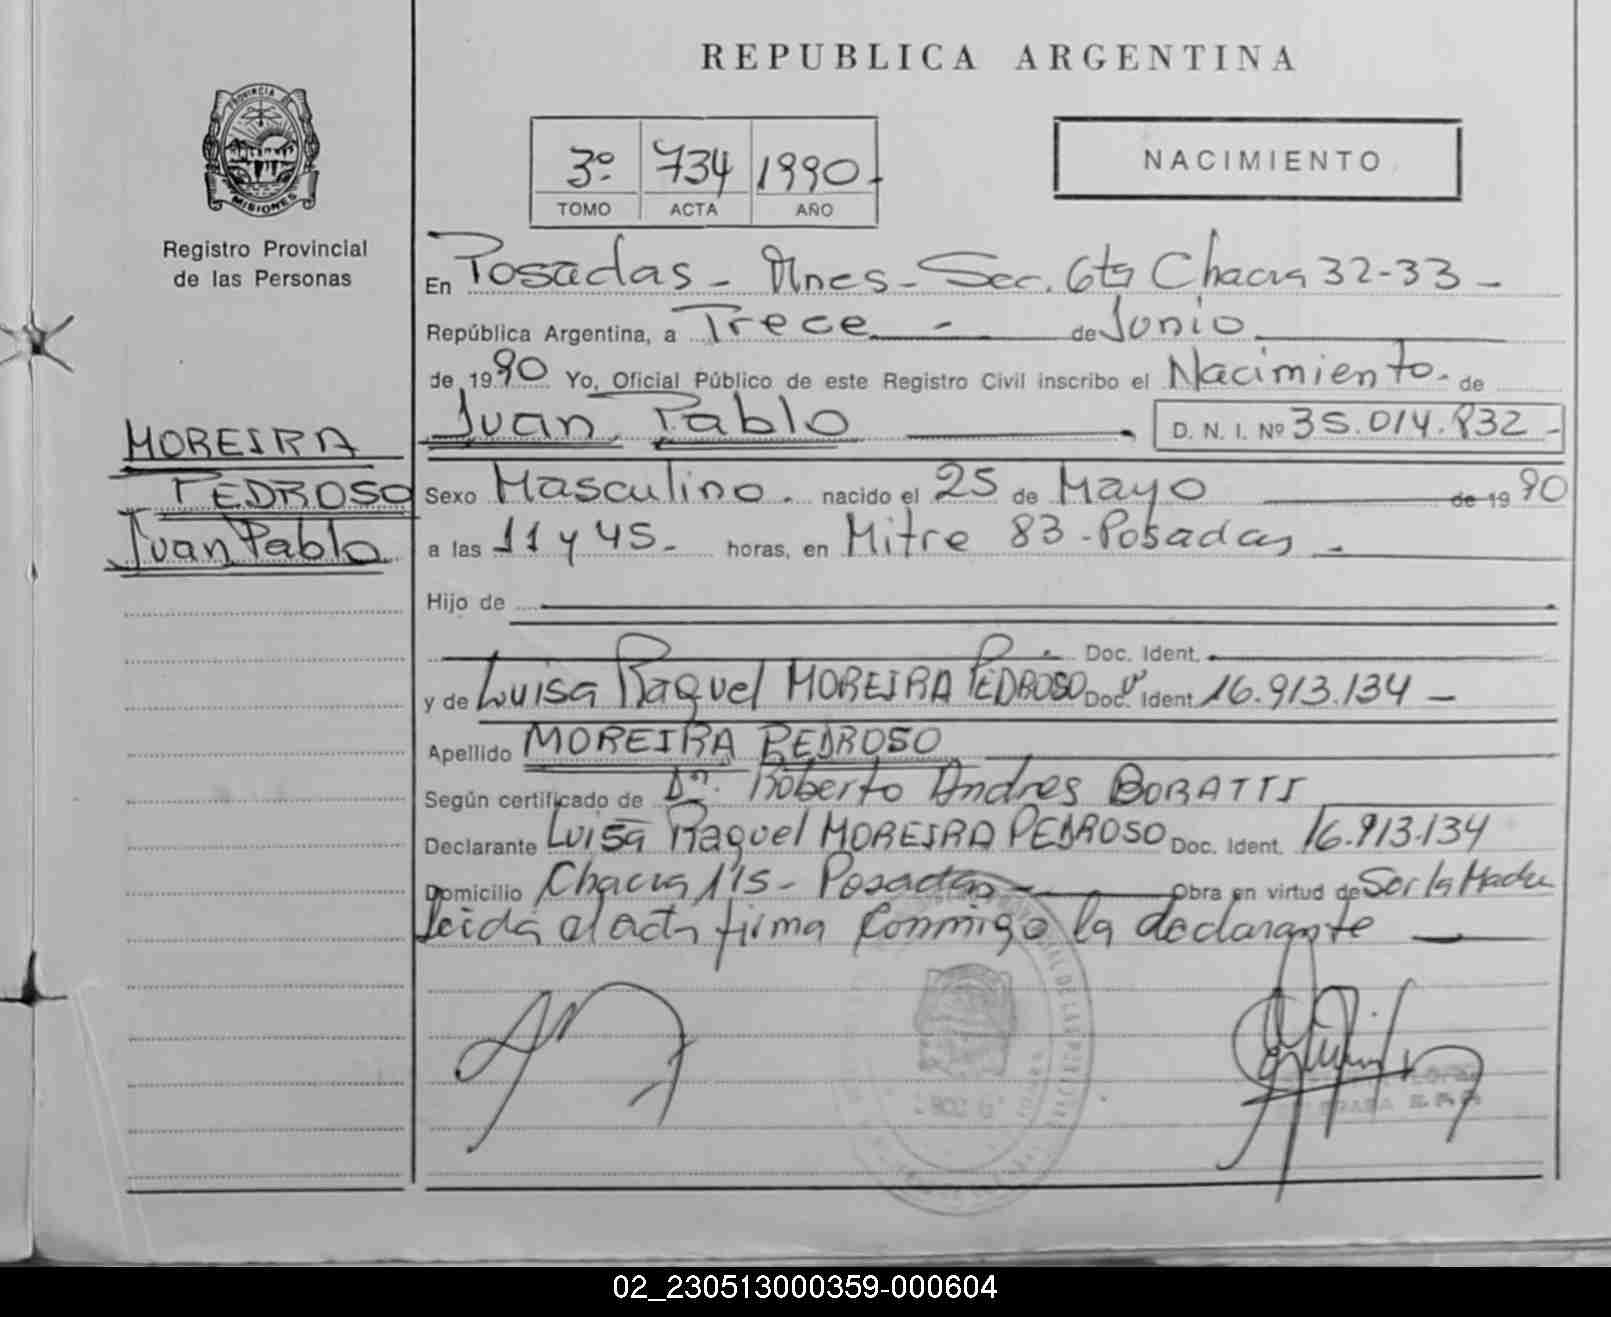 REPUBLICA ARGENTINA
PROVINCIA DE
MISIONES
Registro Provincial
de las Personas
3º 734 1990
TOMO ACTA AÑO
NACIMIENTO
En Posadas - Mnes - Sec. 6ta Chacra 32-33 -
República Argentina, a Trece - de Junio
de 1990 Yo, Oficial Público de este Registro Civil inscribo el Nacimiento - de
Juan Pablo D. N. I. Nº 35.014.832 -
MOREIRA
PEDROSO
Juan Pablo
Sexo Masculino. nacido el 25 de Mayo de 1990
a las 11 y 45 - horas, en Mitre 83 - Posadas -
Hijo de
Doc. Ident.
y de Luisa Raquel MOREIRA PEDROSO Doc. Ident. 16.913.134 -
Apellido MOREIRA PEDROSO
Según certificado de Dr. Roberto Andres BORATTI
Declarante Luisa Raquel MOREIRA PEDROSO Doc. Ident. 16.913.134
Domicilio Chacra 115 - Posadas - Obra en virtud de Ser la Madre
leida el acta firma conmigo la declarante
02_230513000359-000604